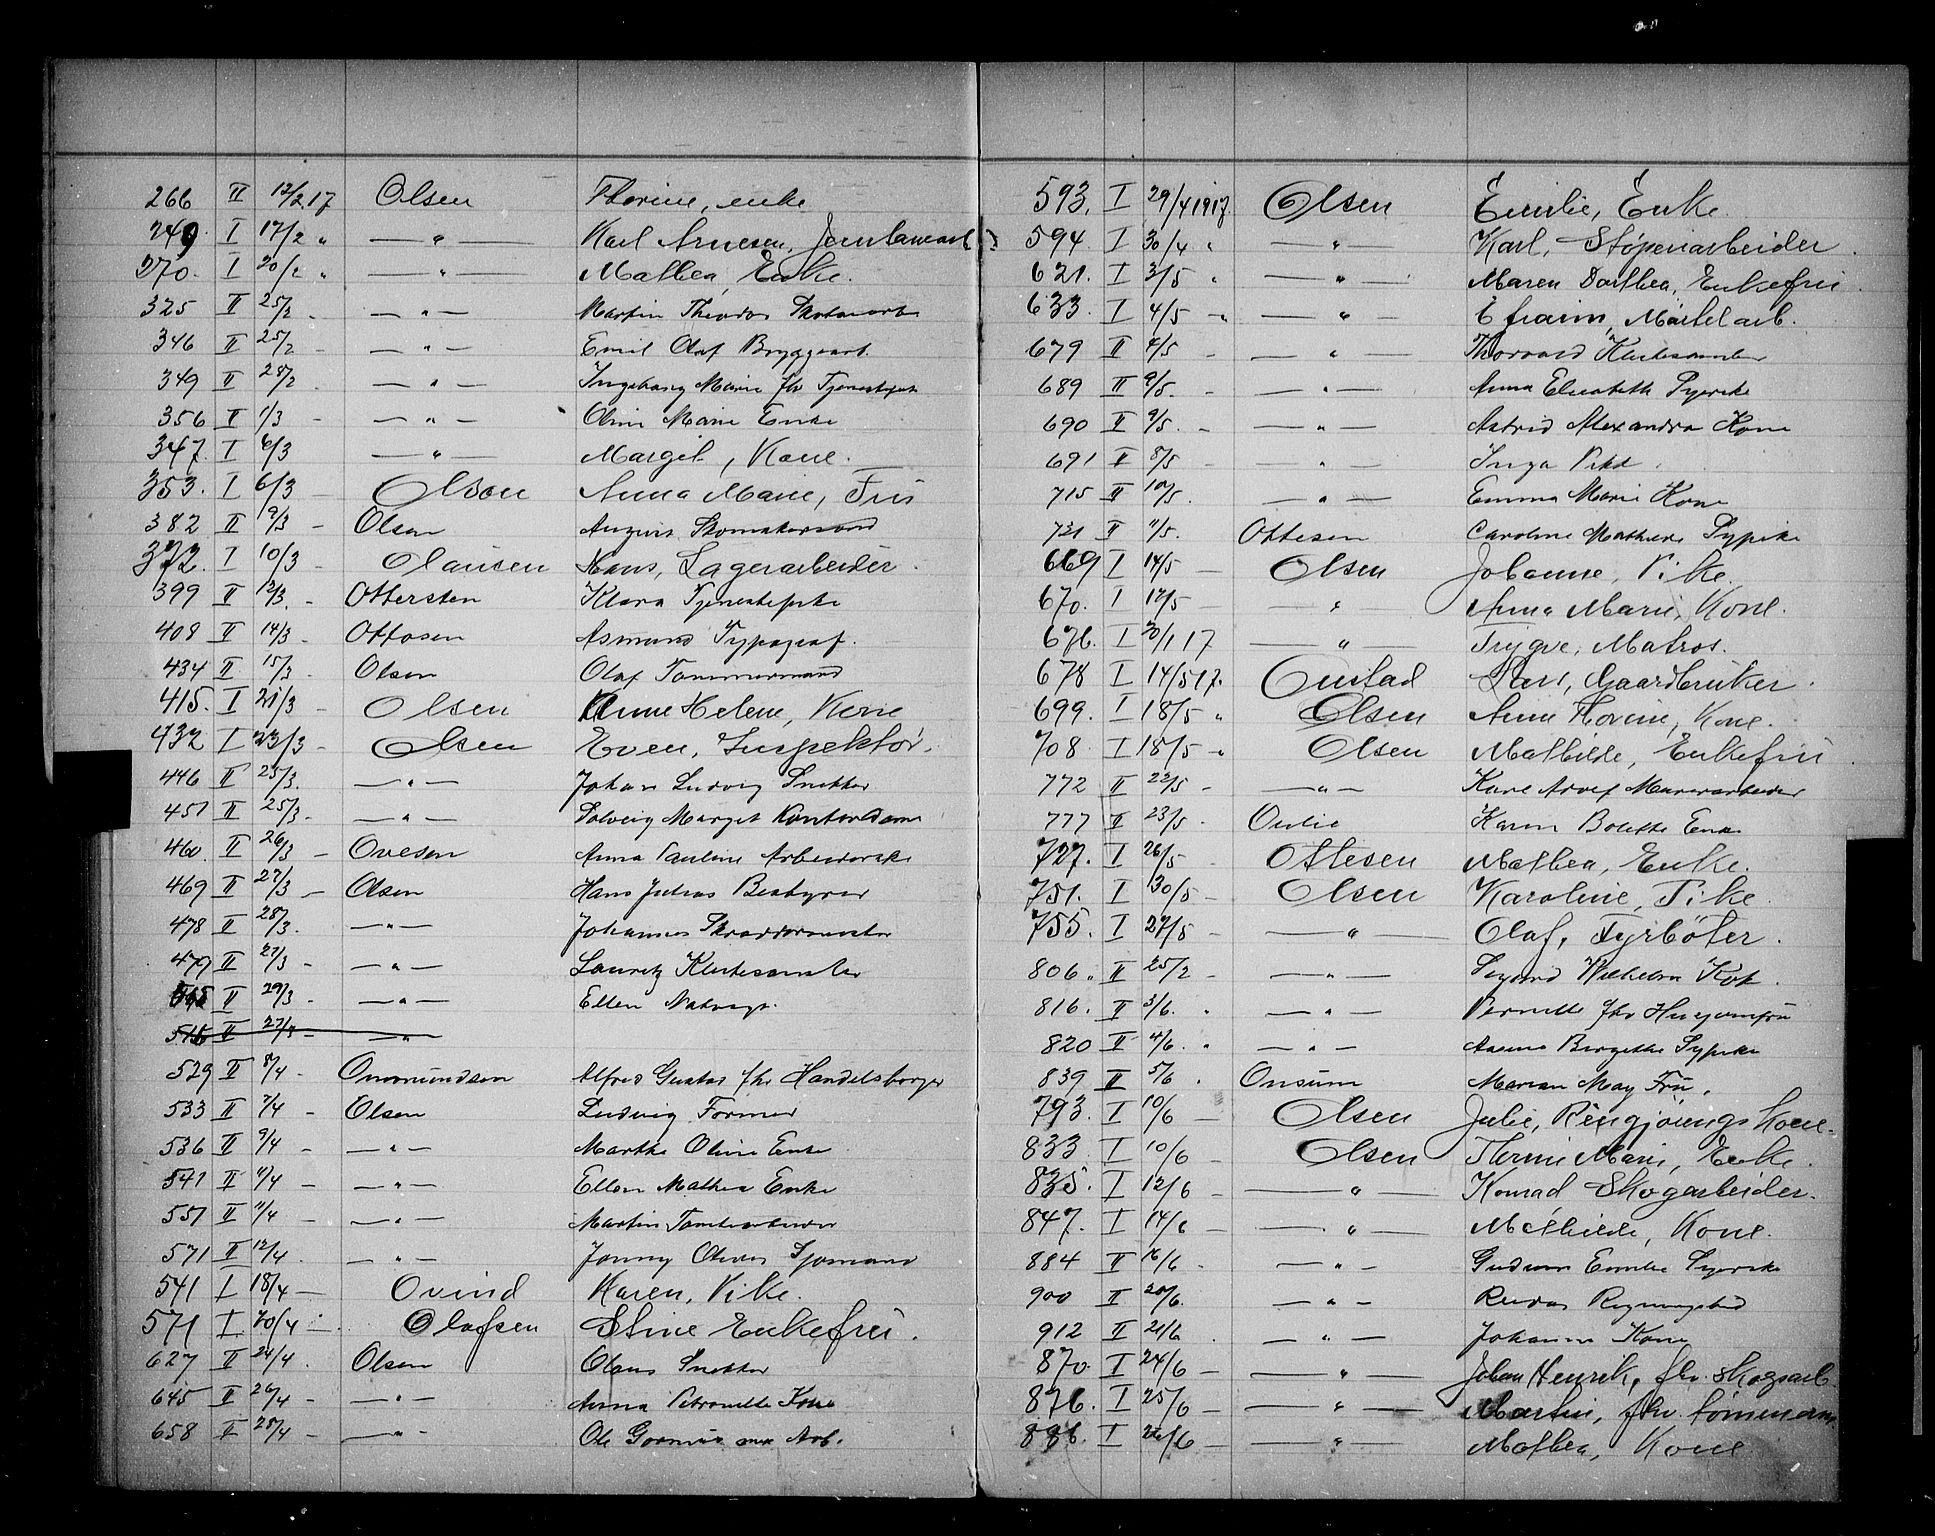 266 II 12/2 17 Olsen Florine, enke
249. I 17/2 " — " — Karl Arnesen, Jernbanearb
270. I 20/2 " — " — Mathea, Enke.
325 II 25/2 - — " — Martin Theodor
346 II 25/2 - — " — Emil Olaf Bryggearb.
349 II 28/2 - — " — Ingeborg Marie fhv Tjenestepike
356 II 1/3 - — " — Oline Marie Enke
347. I 6/3 — " — Margit, Kone.
353. I 6/3 — Olsen Anna Marie, Fru
382 II 9/3 - Olsen August Skomakersvend
372. I 10/3 - Olausen Hans, Lagerarbeider.
399 II 12/3. - Ottersten Klara Tjenestepike
408 II 14/3. - Ottosen Asmund Typograf.
434 II 15/3. Olsen Olaf Tømmermand
415. I 21/3 - Olsen Anne Helene, Kone
432 I 23/3 - Olsen Even, Inspektør.
446 II 25/3. — " — Johan Ludvig Snekker
451 II 25/3. — " — Solveig Margit Kontordame
460. II 26/3 — Ovesen Anna Pauline Arbeiderske
469 II 27/3 — Olsen Hans Julius Bestyrer
478 II 28/3. — " — Johannes Skræddermester
479 II 27/3 - — " — Lauritz Klutesamler
II 29/3 - — " — Ellen
515 II 27/3 - — " —
529 II 8/4 - Ommundsen Alfred Gustav fhv Handelsborger
533 II 7/4 - Olsen Ludvig Former
536 II 9/4 - — " — Marthe Oline Enke
541 II 11/4 - — " — Ellen Mathea Enke
557 II 11/4 - — " — Martin Tomtearbeider
571 II 12/4. — " — Jonny Oliver Sjømand
541 I 18/4 — Ovind Karen, Pike.
571 I 20/4 — Olafsen Stine Enkefru.
627 II 24/4. Olsen Olaus Snekker
645 II 26/4 - — " — Anna Petronelle Kone
658 II 28/4 - — " — Ole Gormus Arb.
593. I 29/4 1917. Olsen Emilie, Enke.
594. I 30/4 " — " — Karl, Støperiarbeider
621. I 3/5 " — " — Maren Dorthea, Enkefru.
633. I 4/5 - " — " — Efraim, Møbelarb.
679 II 4/5 - — " — Thorvald Klutesamler
689 II 9/5. - — " — Anna Elisabeth Syerske
690 II 9/5. - — " — Astrid Alexandra Kone
691 II 8/5 - — " — Inga Pike.
715 II 10/5. — " — Emma Marie Kone
721 II 11/5. Ottesen Caroline Mathilde Sypike
669 I 14/5 — Olsen Johanne, Pike.
670. I 12/5 — " — Anna Marie, Kone.
676. I 20/1 17 — " — Trygve, Matros.
678 I 14/5 17. Oustad Lars, Gaardbruker.
699. I 18/5 " Olsen Anne Hovine, Kone.
708. I 18/5 " Olsen Mathilde, Enkefru.
772 II 22/5 - — " — Karl Adolf Murerarbeider
777 II 23/5. Oulie Karen Bolette Enke
727. I 26/5 - Ottesen Mathea, Enke.
751. I 30/5 - Olsen Karoline, Pike.
755. I 27/5 - — " — Olaf, Fyrbøter.
806. II 25/2 - — " — Sigurd Wilhelm Kok.
816. II 3/6. " — " — Pernille fhv Husjomfru
820 II 4/6. " — " — Aasine Birgitte Sypike
839 II 5/6 . Onsum Marian May Fru.
793. I 10/6 — Olsen Julie, Rengjørings Kone.
833 I 10/6 - Olsen Thrine Marie, Enke.
835. I 12/6 - — " — Konrad Skogarbeider.
847. I 14/6 — — " — Mathilde, Kone.
884 II 16/6 . — " — Gudrun Emilie Syerske
900 II 20/6. — " — Reidar Regningsbud
912 II 21/6 . — " — Johanne Kone
870. I 24/6 — — " — Johan Henrik, fhv. skogsarb.
876. I 25/6 - — " — Martin, fhv. tømmerm.
896. I 26/6 — — " — Mathea, Kone